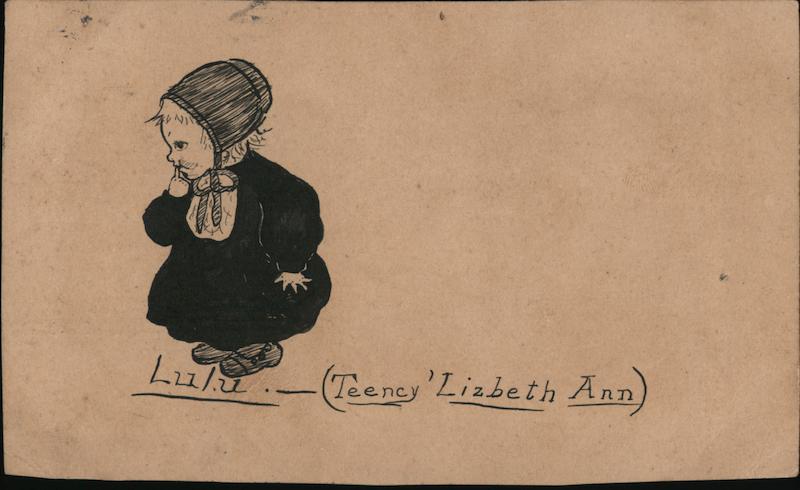 Lulu. — (Teency 'Lizbeth Ann)